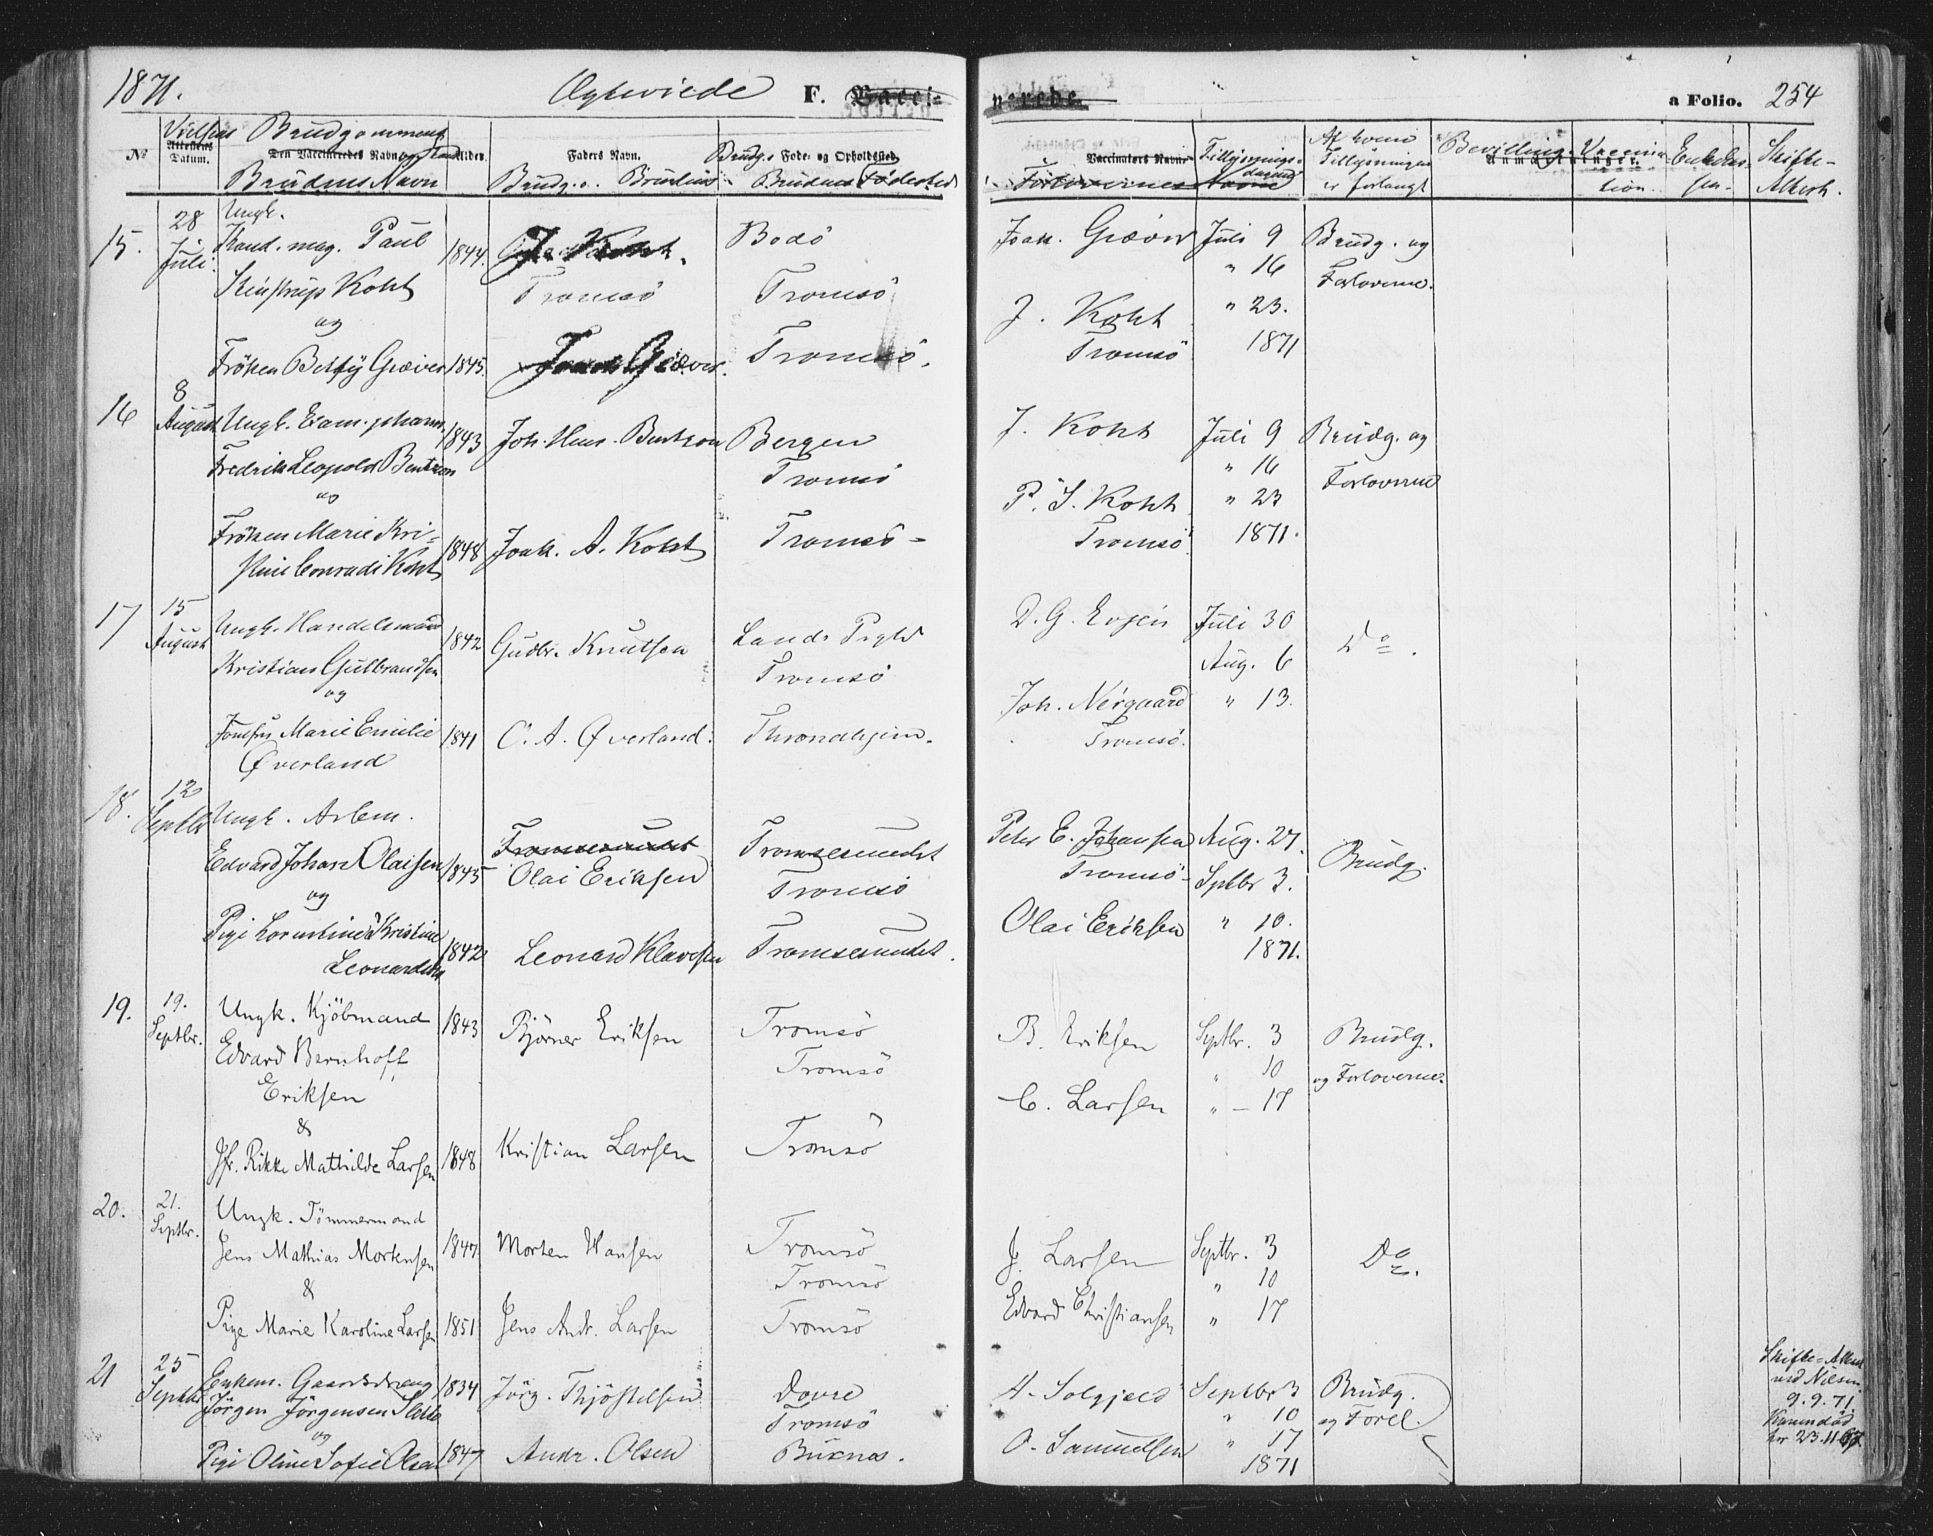 1871.
Ægteviede F. Vacci-
nerede. a Folio. 254
No
Vielsens Attestens Datum.
Brudgommens
Den Vaccineredes Navn
Brudens Navn
Alder.
Faders Navn.
Brudg. o. Brudens
Brudg. Føde- og Opholdssted
Brudens Fødested
Vaccinators Navn
Forlovernes Navne
Tillysnings-
Af hvem
Tillysningen
er forlangt
Anmærkninger.
Bevilling.
Vaccina-
tion.
Skifte-
Attest.
15.
28
Juli.
Ungk.
Kand. mag. Paul
Steinstrup Koht
og
Frøken Betty Giæver
1844.
1845.
J. Koht.
Tromsö
Joach Giæver.
Bodö
Tromsö
Tromsö.
Joak. Giæver
J. Koht
Tromsö
Juli 9
" 16
" 23.
1871
Brudg. og
Forloverne.
16
8
August
Ungk. Exam. pharm.
Fredrik Leopold Bentzon
og
Frøken Marie Kri-
stine Conradi Koht
1843
1848
Joh. Hans. Bentzon
Joak. A. Koht
Bergen
Tromsö
Tromsö
J. Koht
P. S. Koht
Tromsö.
Juli 9
" 16
" 23
1871.
Brudg. og
Forloverne
17
15
August
Ungk. Handelsmand
Kristian Gulbrandsen
og
Jomfru Marie Emilie
Øverland
1842
1841
Gudbr. Knutsen
C. A. Øverland.
Lands Prgld
Tromsö
Throndhjem.
D. G. Evjen
Joh. Nergaard
Tromsö.
Juli 30
Aug. 6
" 13.
Do.
18.
12
Septbr
Ungk. Arbm.
Edvard Johan Olaisen
og
Pige Kristine
Leonardsen
1845
1842
Tromsesundet
Olai Eriksen
Leonard Klavesen
Tromsesundet
Tromsö
Tromsesundet.
Peter E. Johansen
Tromsö
Olai Eriksen
Aug. 27.
Sptbr 3.
" 10.
1871.
Brudg.
19.
19.
Septbr.
Ungk. Kjöbmand
Edvard Bernhoff
Eriksen
&
Jfr. Rikke Mathilde Larsen
1843
1848
Björner Eriksen
Kristian Larsen
Tromsö
Tromsö
Tromsö
B. Eriksen
C. Larsen
Septbr. 3
" 10
" – 17
Brudg.
og Forloverne.
20.
21.
Septbr.
Ungk. Tömmermand
Jens Mathias Mortensen
&
Pige Marie Karoline Larsen
1847
1851
Morten Hansen
Jens Andr. Larsen
Tromsö
Tromsö
Tromsö
J. Larsen
Edvard Christiansen
Septbr. 3
" 10
" 17
Do.
21
25
Septbr
Enkem. Gaardsdreng
Jörgen Jörgensen Slette
og
Pige Oline Sofie Olsen
1834
1847
Jörg. Thjöstelsen
Andr. Olsen
Dovre
Tromsö
Buknes.
A. Solgjeld
O. Samuelsen
Septbr 3
" 10
" 17
1871
Brudg.
og Forl.
Skifte-Attest
9.9.71.